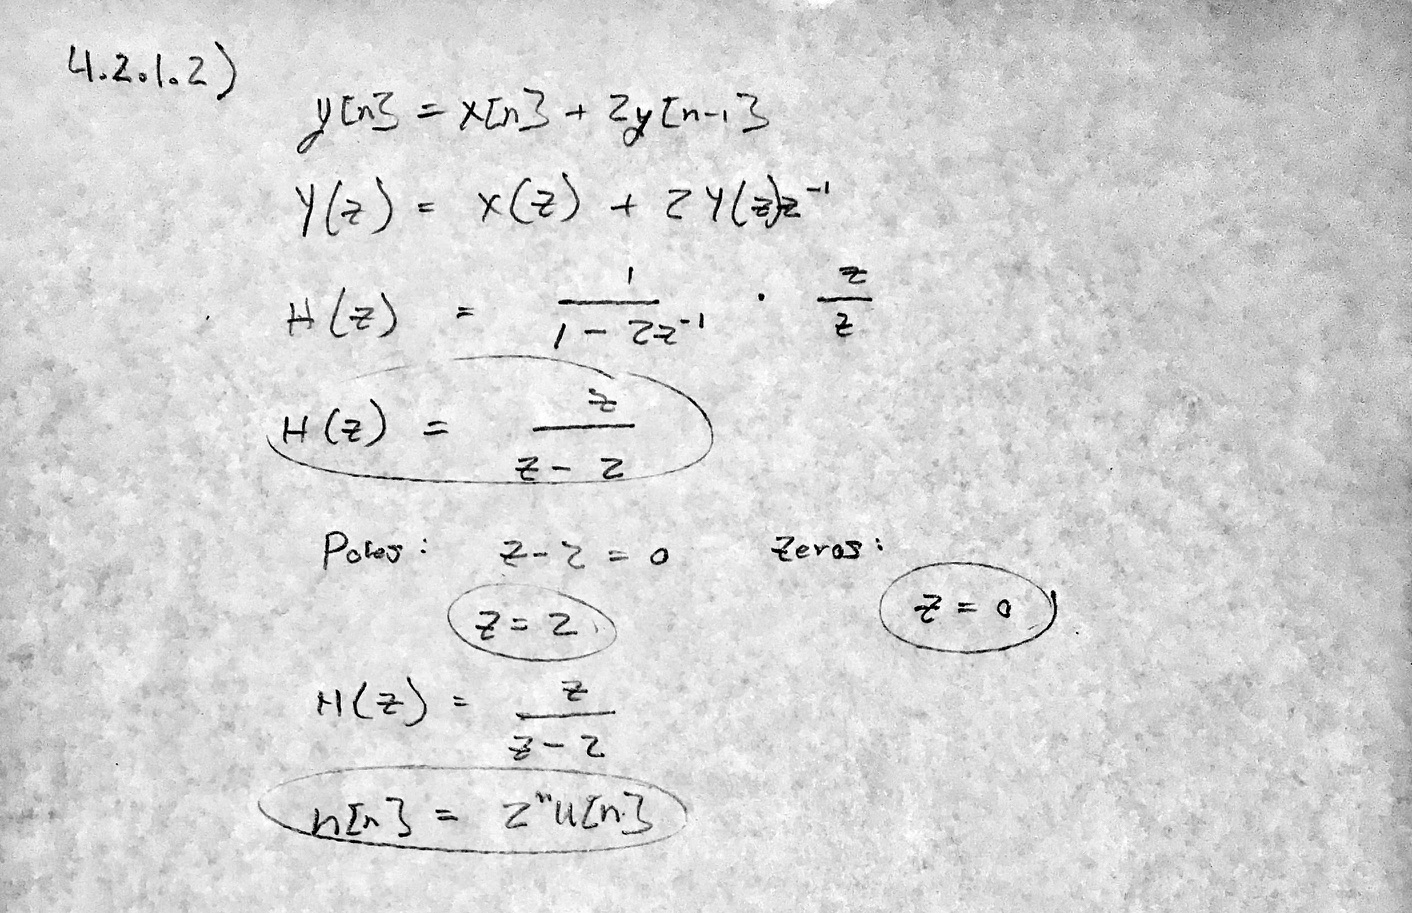 4.2.1.2)
y[n] = x[n] + 2y[n-1]
Y(z) = X(z) + 2Y(z)z⁻¹
H(z) = 1/(1 - 2z⁻¹) · z/z
H(z) = z/(z - 2)
Poles: z - 2 = 0 Zeros:
z = 2 z = 0
H(z) = z/(z - 2)
h[n] = 2ⁿu[n]